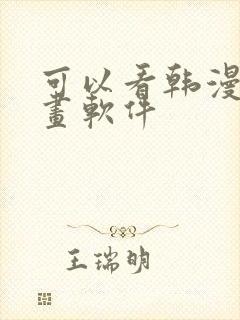 可以看韩漫
畫軟件
王瑞明